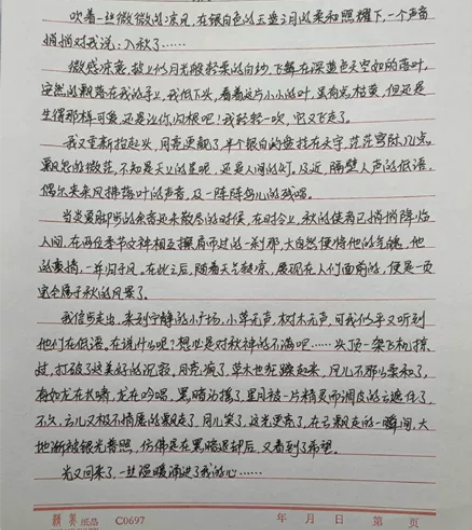 吹着一丝微微的凉风,在银白色的玉盘之月的柔和照耀下,一个声音
悄悄对我说:入秋了……
微感凉意,披上似月光般轻柔的白纱,飞舞在深蓝色天空的落叶,
安然的飘落在我的手上,我低下头,看着这片小小的叶,虽有点枯黄,但还是
生得那样可爱,还是让你归根吧!我轻轻一吹,它又飞走了。
我又重新抬起头,月亮更靓了,半个银白的盘挂在天宇,茫茫穹际,几点
飘忽的微茫,不知是天上的星呢,还是人间的灯。及近,隔壁人声的低语,
偶尔来来风拂落叶的声音,及一阵阵鸟儿的残唱。
当炎夏脚步的余音还未散尽的时候,在时令上,秋的使者已悄悄降临
人间,在两位季节女神相互擦肩而过的一刹那,大自然便将他的气魄,他
的豪情,一并归于风,在此之后,随着天气转凉,展现在人们面前的,便是一页
完全属于秋的风景了。
我信步走出,来到宁静的小广场,小草无声,树木无声,可我似乎又听到
他们在低语。在说什么呢?想必是对秋神的不满吧……头顶一架飞机掠
过,打破了这美好的沉寂,月亮满了,草木也躁起来,风儿不那么柔和了,
有如龙在长啸,龙在吟唱,黑暗沾搅了,星月被一片精灵而调皮的云遮住了,
不久,云儿又极不情愿的飘走了,月儿笑了,这光更亮了,在云飘走的一瞬间,大
地渐被银光普照,仿佛是在黑暗退却后,又看到了希望。
光又回来了,一丝温暖涌进了我的心……
颖美纸品 C0697 年 月 日 第 页